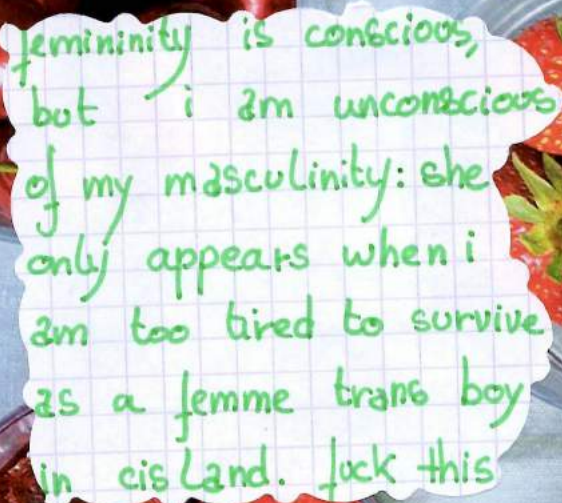 femininity is conscious,
but i am unconscious
of my masculinity: she
only appears when i
am too tired to survive
as a femme trans boy
in cis land. fuck this